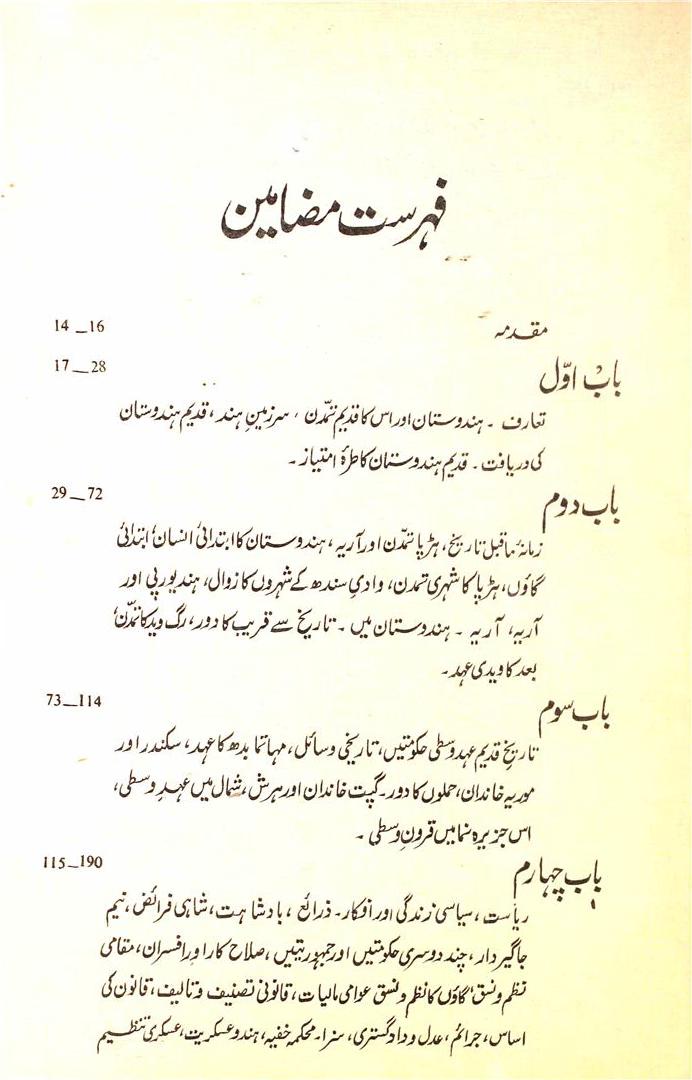 فہرست مضامین
مقدمہ 14 ـ 16
باب اوّل 17 ـ 28
تعارف ۔ ہندوستان اور اس کا قدیم تمدّن ، سرزمینِ ہند ، قدیم ہندوستان
کی دریافت ۔ قدیم ہندوستان کا طرۂ امتیاز ۔
باب دوم 29 ـ 72
زمانۂ ماقبل تاریخ، ہڑپا تمدّن اور آریہ ، ہندوستان کا ابتدائی انسان، ابتدائی
گاؤں، ہڑپا کا شہری تمدن، وادیِ سندھ کے شہروں کا زوال، ہندیورپی اور
آریہ، آریہ ۔ ہندوستان میں ۔ تاریخ سے قریب کا دور، رگ وید کا تمدّن،
بعد کا ویدی عہد ۔
باب سوم 73 ـ 114
تاریخ قدیم عہد وسطی حکومتیں، تاریخی وسائل، مہاتما بدھ کا عہد، سکندر اور
موریہ خاندان، حملوں کا دور ۔ گپت خاندان اور ہرش، شمال میں عہدِ وسطی،
اس جزیرہ نما میں قرونِ وسطی ۔
باب چہارم 115 ـ 190
ریاست ، سیاسی زندگی اور افکار ۔ ذرائع ، بادشاہت، شاہی فرائض، نیم
جاگیردار ، چند دوسری حکومتیں اور جمہوریتیں ، صلاح کار اور افسران، مقامی
نظم و نسق، گاؤں کا نظم و نسق عوامی مالیات، قانونی تصنیف و تالیف، قانون کی
اساس، جرائم، عدل و داد گستری، سزا ۔ محکمہ خفیہ، ہندو عسکریت، عسکری تنظیم